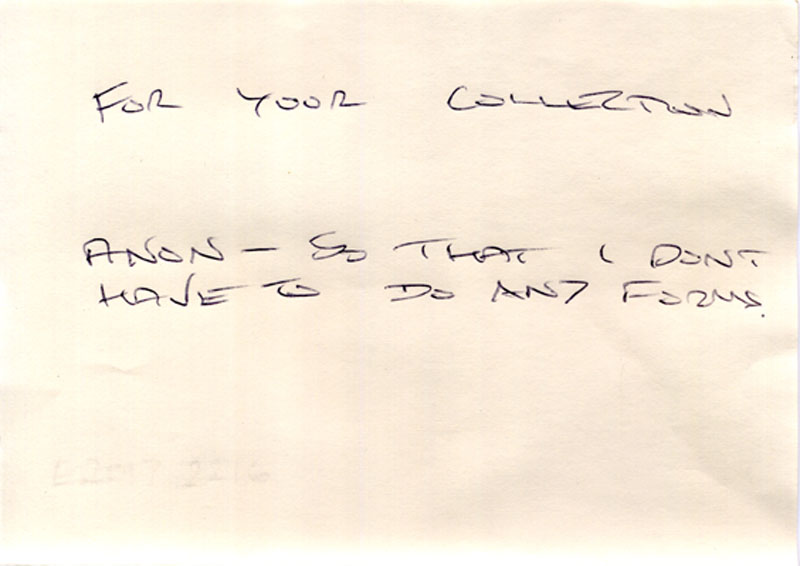 FOR YOUR COLLECTION
ANON — SO THAT I DONT
HAVE TO DO ANY FORMS.